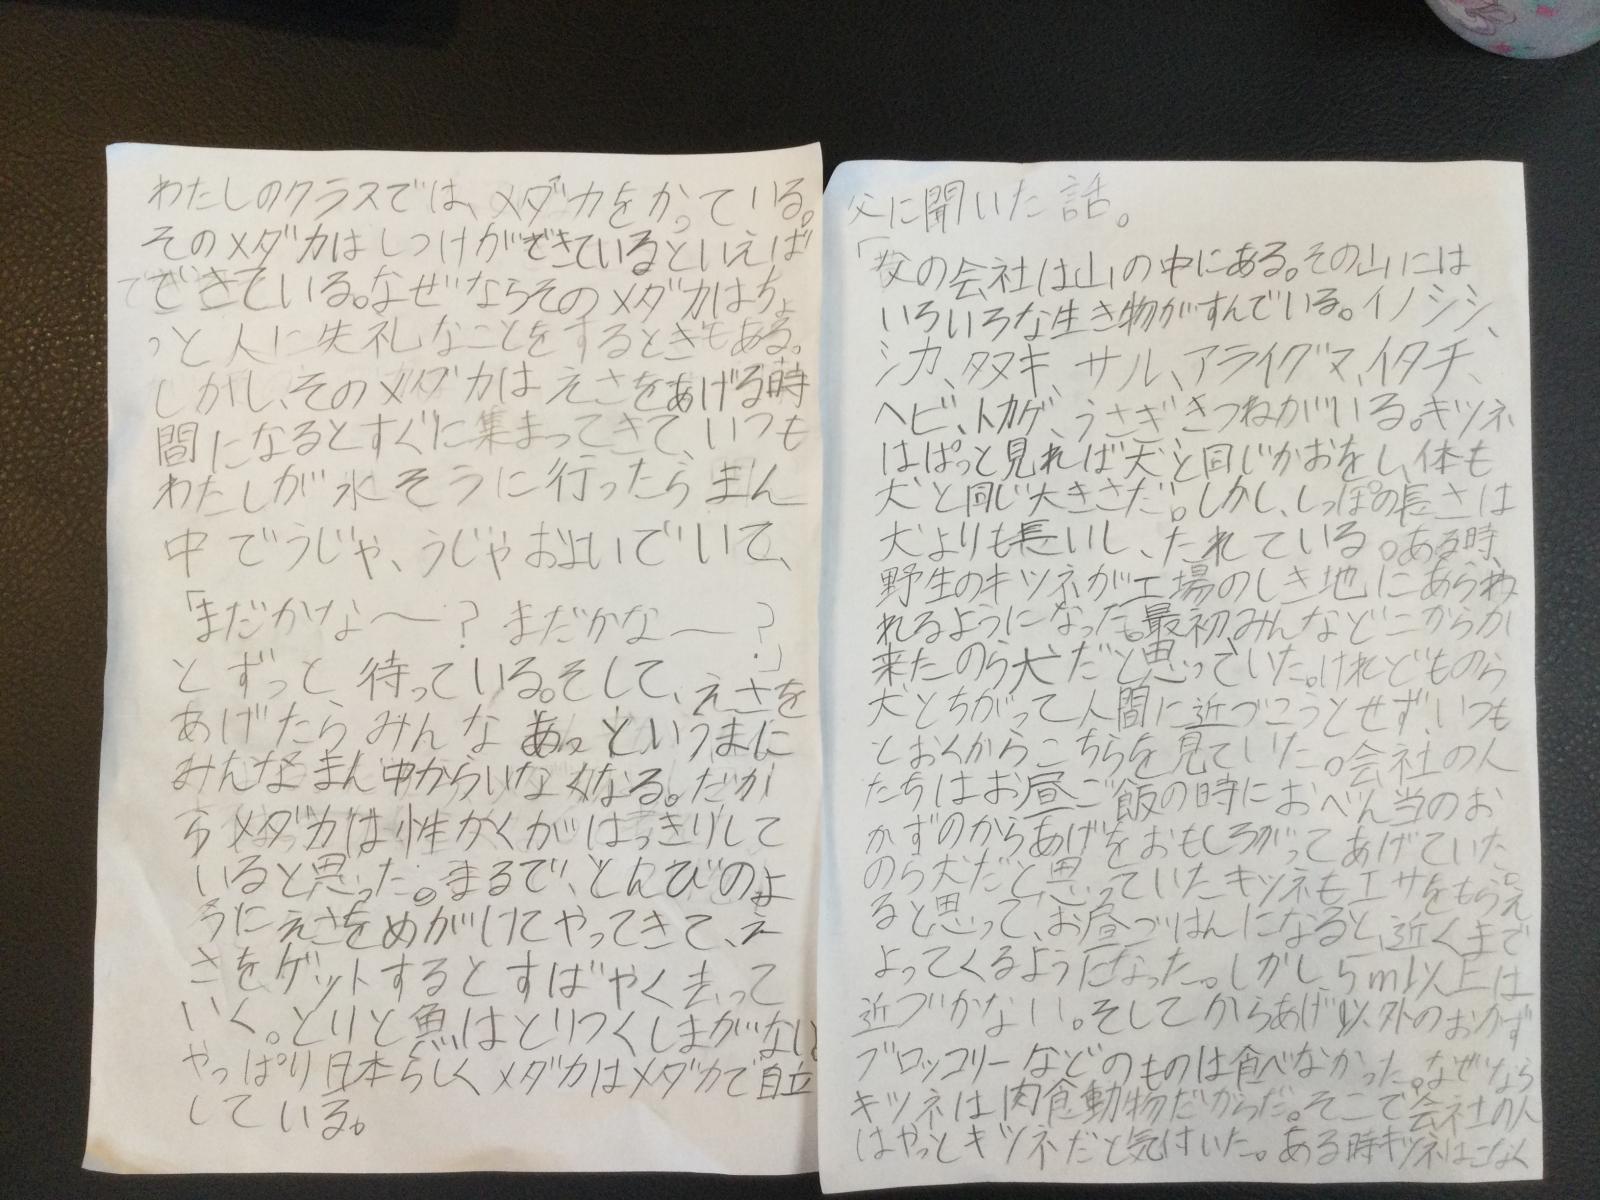 わたしのクラスでは、メダカをかっている。
そのメダカはしつけができているといえば
できている。なぜならそのメダカはちょ
っと人に失礼なことをするときもある。
しかし、そのメダカはえさをあげる時
間になるとすぐに集まってきて、いつも
わたしが水そうに行ったらまん
中でうじゃ、うじゃおよいでいて、
「まだかな〜?まだかな〜?」
とずっと待っている。そして、えさを
あげたらみんなあっというまに
みんなまん中からいなくなる。だか
らメダカは性かくがはっきりして
いると思った。まるで、とんびのよ
うにえさをめがけてやってきて、え
さをゲットするとすばやく去って
いく。とりと魚はとりつくしまがない。
やっぱり日本らしくメダカはメダカで自立
している。
父に聞いた話。
「父の会社は山の中にある。その山には
いろいろな生き物がすんでいる。イノシシ、
シカ、タヌキ、サル、アライグマ、イタチ、
ヘビ、トカゲ、うさぎきつねがいる。キツネ
はぱっと見れば犬と同じかおをし、体も
犬と同じ大きさだ。しかし、しっぽの長さは
犬よりも長いし、たれている。ある時、
野生のキツネが工場のしき地にあらわ
れるようになった。最初みんなどこからか
来たのら犬だと思っていた。けれどものら
犬とちがって人間に近づこうとせずいつも
とおくからこちらを見ていた。会社の人
たちはお昼ご飯の時におべん当のお
かずのからあげをおもしろがってあげていた。
のら犬だと思っていたキツネもエサをもらえ
ると思って、お昼ごはんになると、近くまで
よってくるようになった。しかし5m以上は
近づかない。そしてからあげ以外のおかず
ブロッコリーなどのものは食べなかった。なぜなら
キツネは肉食動物だからだ。そこで会社の人
はやっとキツネだと気付いた。ある時キツネはこなく